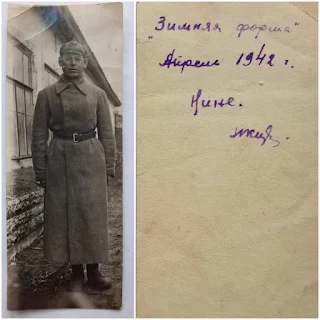 "Зимняя форма"
Апрель 1942 г.
Нине.